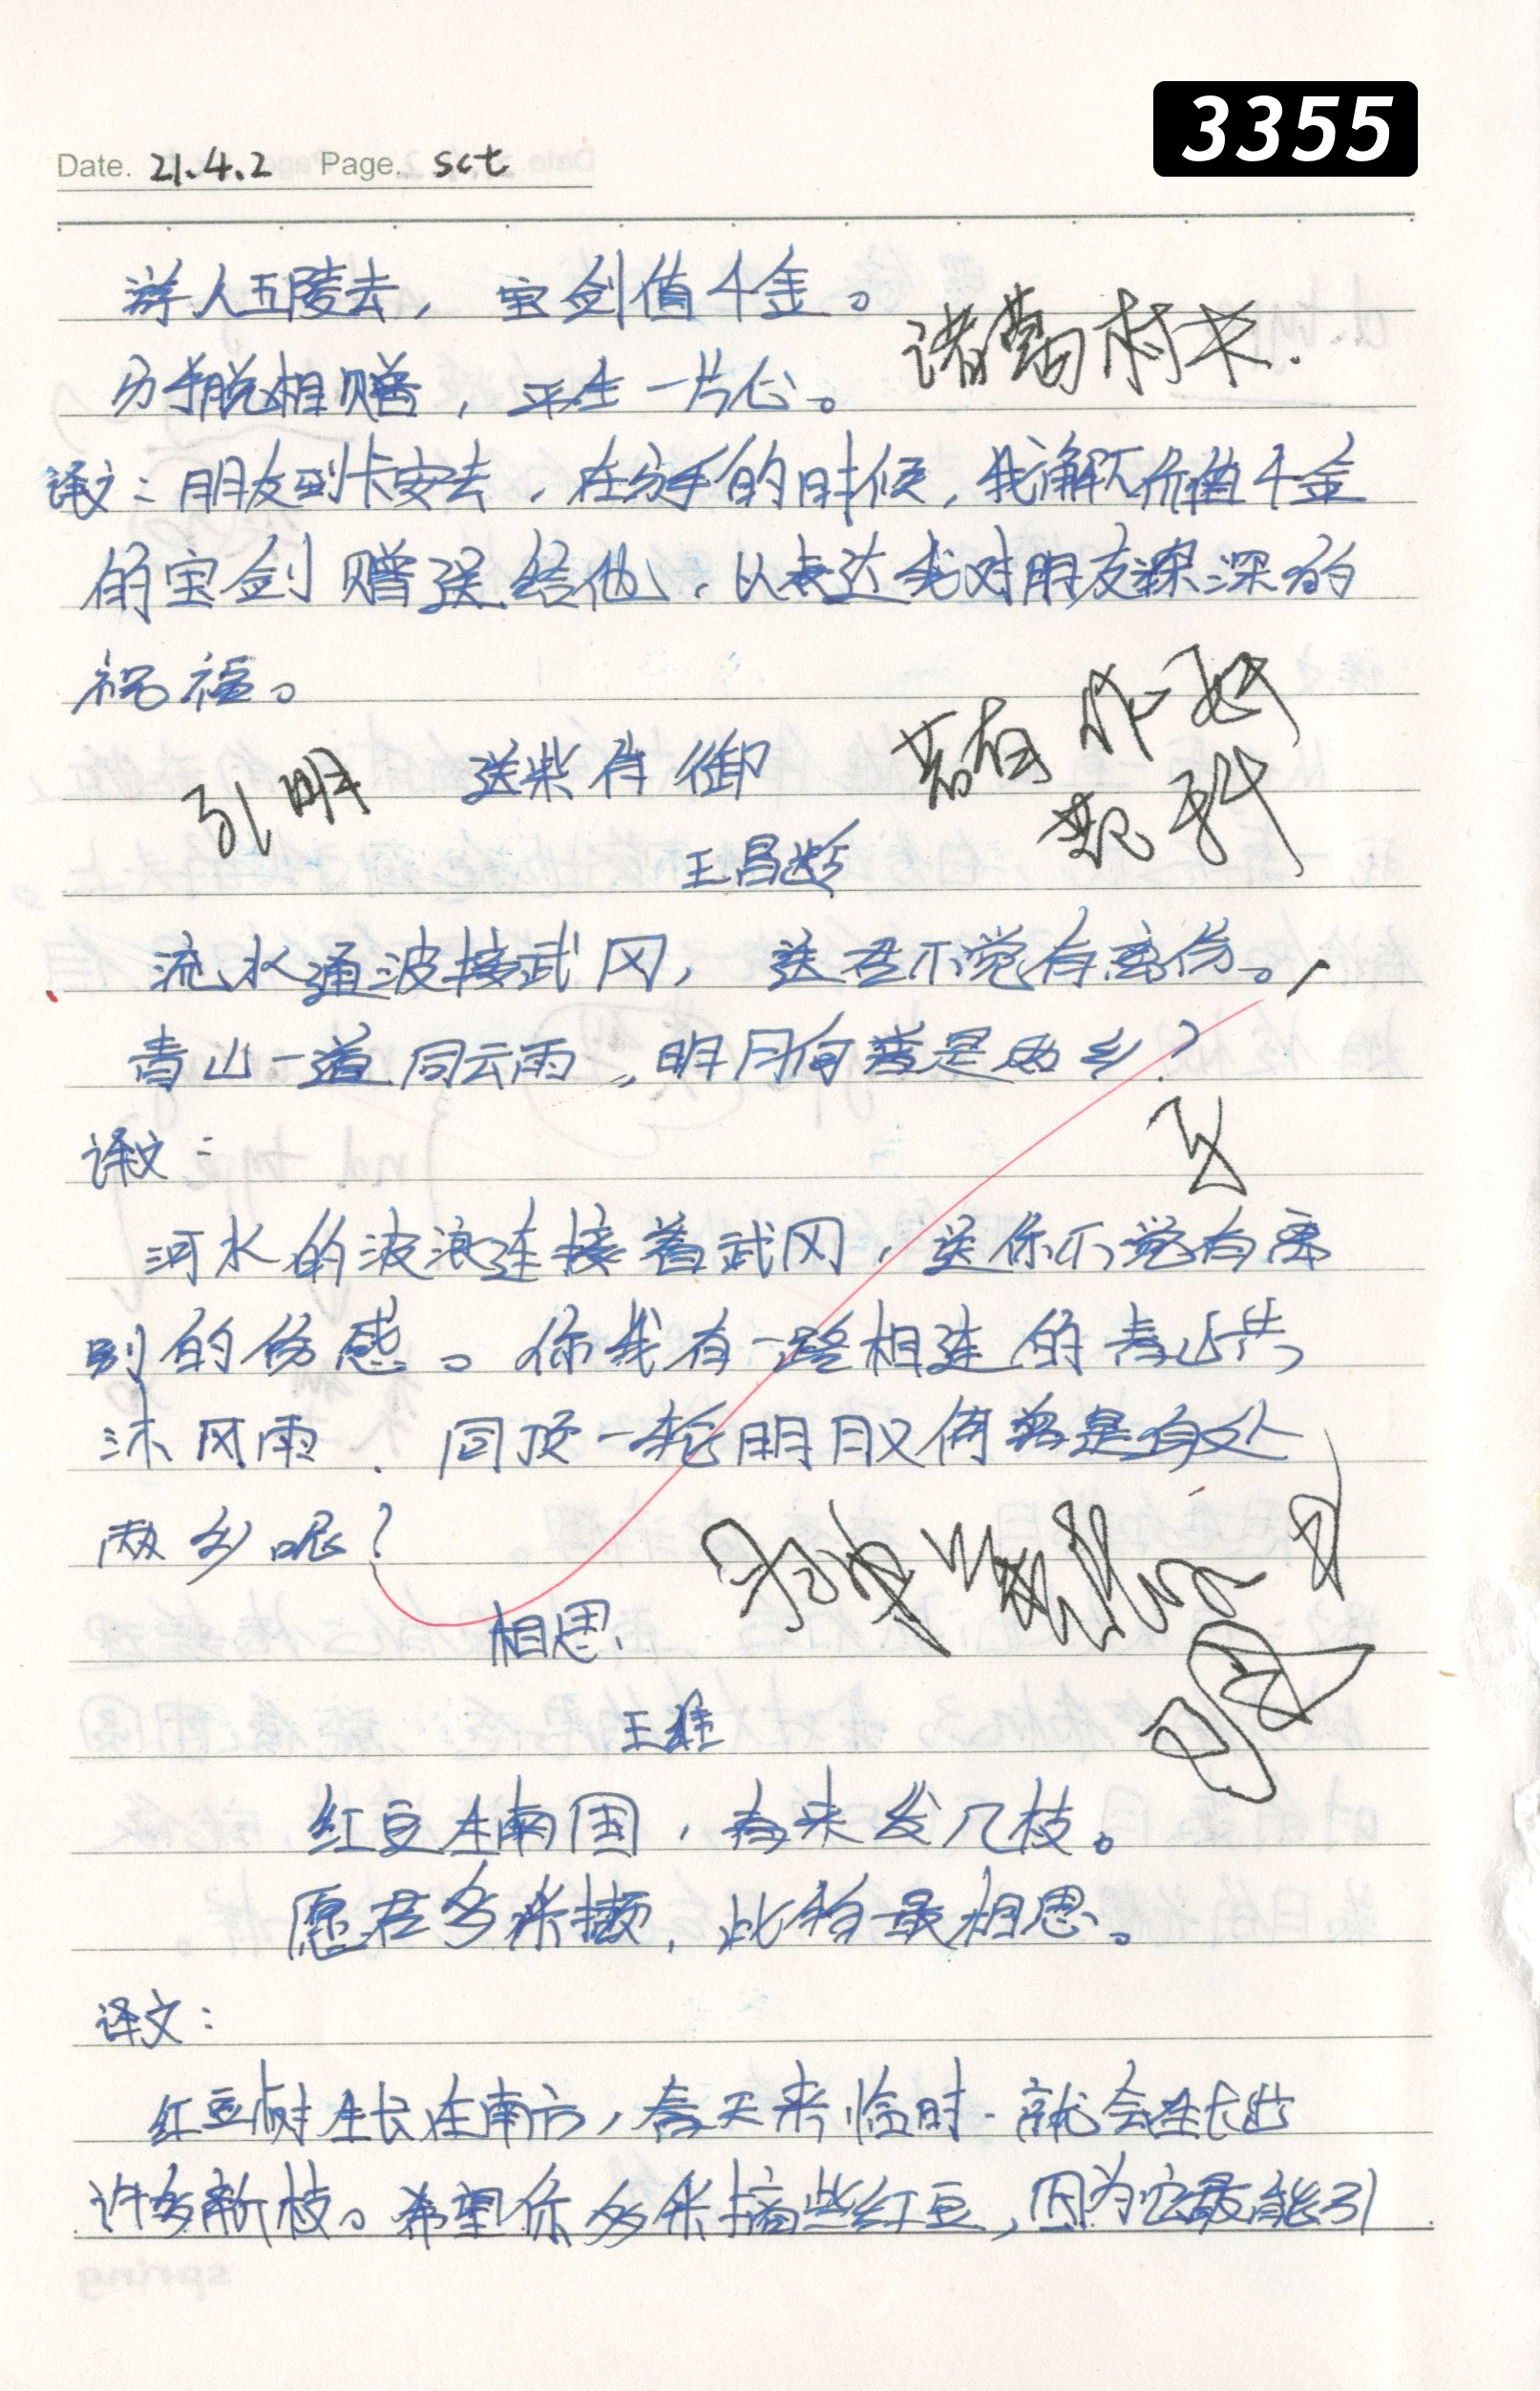 3355
Date. 21.4.2 Page. sct
游人五陵去，宝剑值千金。
分手脱相赠，平生一片心。
诸葛村夫.
译文：朋友到长安去，在分手的时候，我解下价值千金
的宝剑赠送给他，以表达我对朋友深深的
祝福。
孔明 送柴侍御
王昌龄
流水通波接武冈，送君不觉有离伤。
青山一道同云雨，明月何曾是两乡？
译文：
河水的波浪连接着武冈，送你不觉有离
别的伤感。你我有一路相连的青山共
沐风雨，同顶一轮明月又何曾是身处
两乡呢？
相思
王维
红豆生南国，春来发几枝。
愿君多采撷，此物最相思。
译文：
红豆树生长在南方，春天来临时，就会生长出
许多新枝。希望你多采摘些红豆，因为它最能引